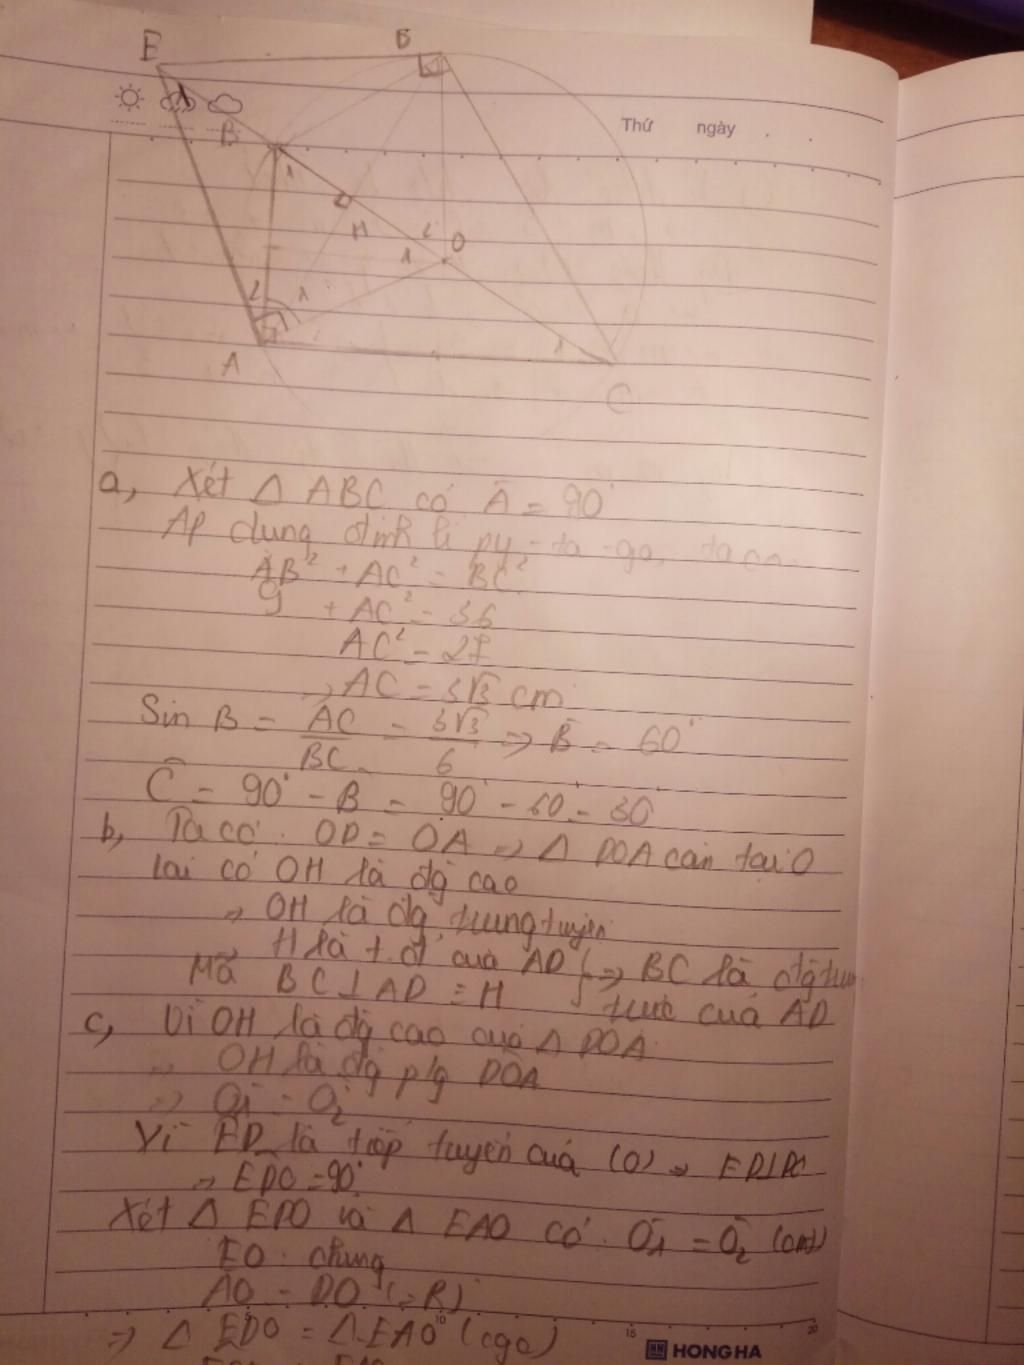 E
Thứ ngày
B
1
H
1
2
O
2
1
1
A
C
a, Xét Δ ABC có Â = 90°
Áp dụng định lí py-ta-go, ta có
AB² + AC² = BC²
9 + AC² = 36
AC² = 27
⇒ AC = 3√3 cm
Sin B = AC/BC = 3√3/6 ⇒ B̂ = 60°
Ĉ = 90° - B = 90° - 60 = 30°
b, Ta có: OD = OA ⇒ Δ DOA cân tại O
lại có OH là đg cao
⇒ OH là đg trung tuyến
H là t.đ của AD } ⇒ BC là đg trung
Mà BC ⊥ AD ≡ H trực của AD
c, Vì OH là đg cao của Δ DOA
⇒ OH là đg p/g DOA
⇒ O1 = O2
Vì ED là tiếp tuyến của (O) ⇒ ED⊥DO
⇒ EDO = 90°
Xét Δ EDO và Δ EAO có: O1 = O2 (cmt)
EO: chung
AO = DO (=R)
⇒ Δ EDO = Δ EAO (cgc)
5
10
15
20
HONG HA